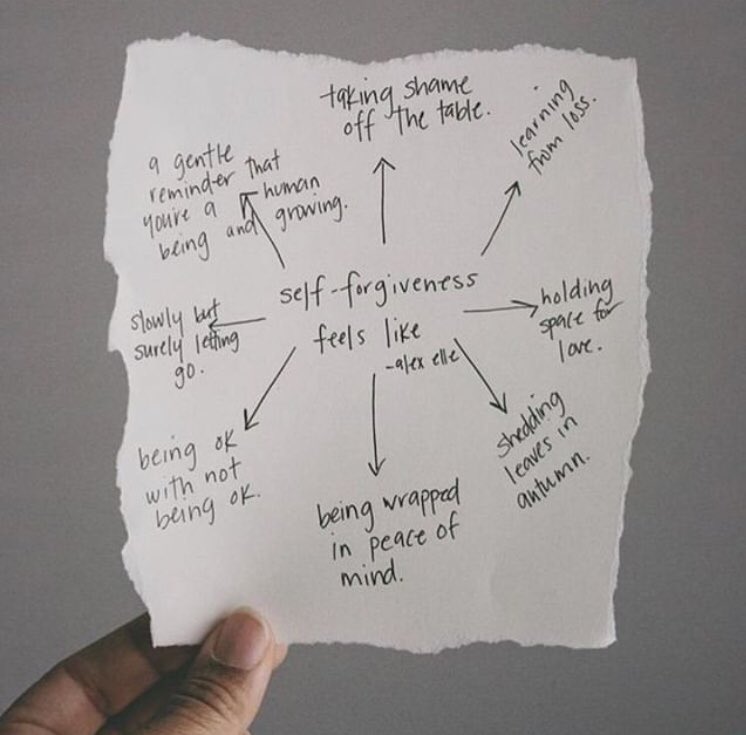 taking shame
off the table.
learning
from loss.
a gentle
reminder that
you're a human
being and growing.
self-forgiveness
feels like
-alex elle
holding
space for
love.
slowly but
surely letting
go.
shedding
leaves in
autumn.
being ok
with not
being ok.
being wrapped
in peace of
mind.